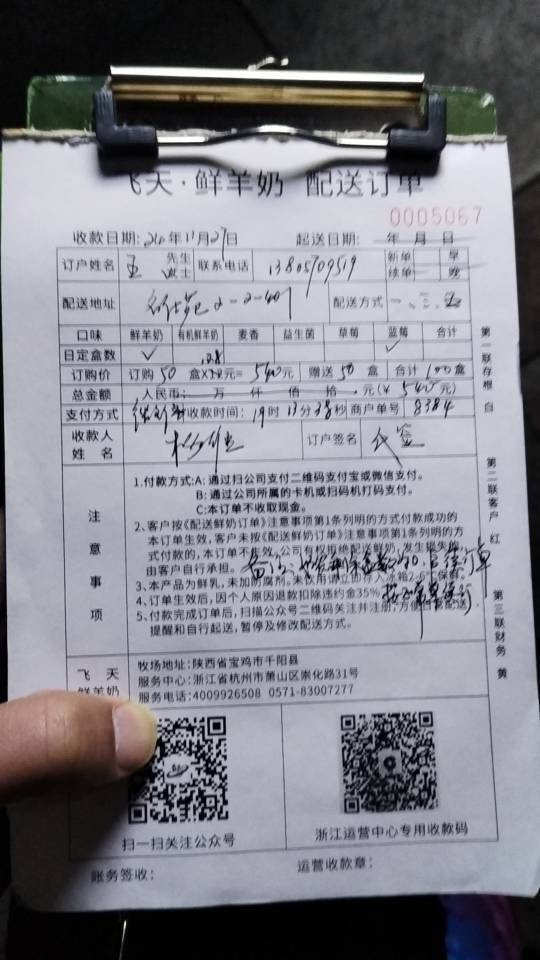 飞天·鲜羊奶 配送订单
0005067
收款日期: 年11月27日 起送日期: 年 月 日
订户姓名 王 先生 女士 联系电话 13805709519 新单 续单 早 晚
配送地址 2-2-401 配送方式 一、三、五
口味 鲜羊奶 有机鲜羊奶 麦香 益生菌 草莓 蓝莓 合计
日定盒数 ✓ ✓
订购价 订购50盒X 元=540元 赠送50盒 合计100盒
总金额 人民币: 万 仟 佰 拾 元(¥ 540元)
支付方式 收款时间: 19时13分38秒 商户单号 8384
收款人姓名 订户签名 代签
注意事项
1.付款方式:A:通过扫公司支付二维码支付宝或微信支付。
B:通过公司所属的卡机或扫码机打码支付。
C:本订单不收取现金。
2、客户按《配送鲜奶订单》注意事项第1条列明的方式付款成功的
本订单生效,客户未按《配送鲜奶订单》注意事项第1条列明的方
式付款的,本订单不生效,公司有权拒绝配送鲜奶,发生损失的
由客户自行承担。
3、本产品为鲜乳,未加防腐剂。未饮用请立即存入冰箱2-6℃保鲜。
4、订单生效后,因个人原因退款扣除违约金35%
5、付款完成订单后,扫描公众号二维码关注并注册,方便日常配送
提醒和自行起送,暂停及修改配送方式。
飞天鲜羊奶
牧场地址:陕西省宝鸡市千阳县
服务中心:浙江省杭州市萧山区崇化路31号
服务电话:4009926508 0571-83007277
扫一扫关注公众号 浙江运营中心专用收款码
账务签收: 运营收款章:
第一联存根 白
第二联客户 红
第三联财务 黄